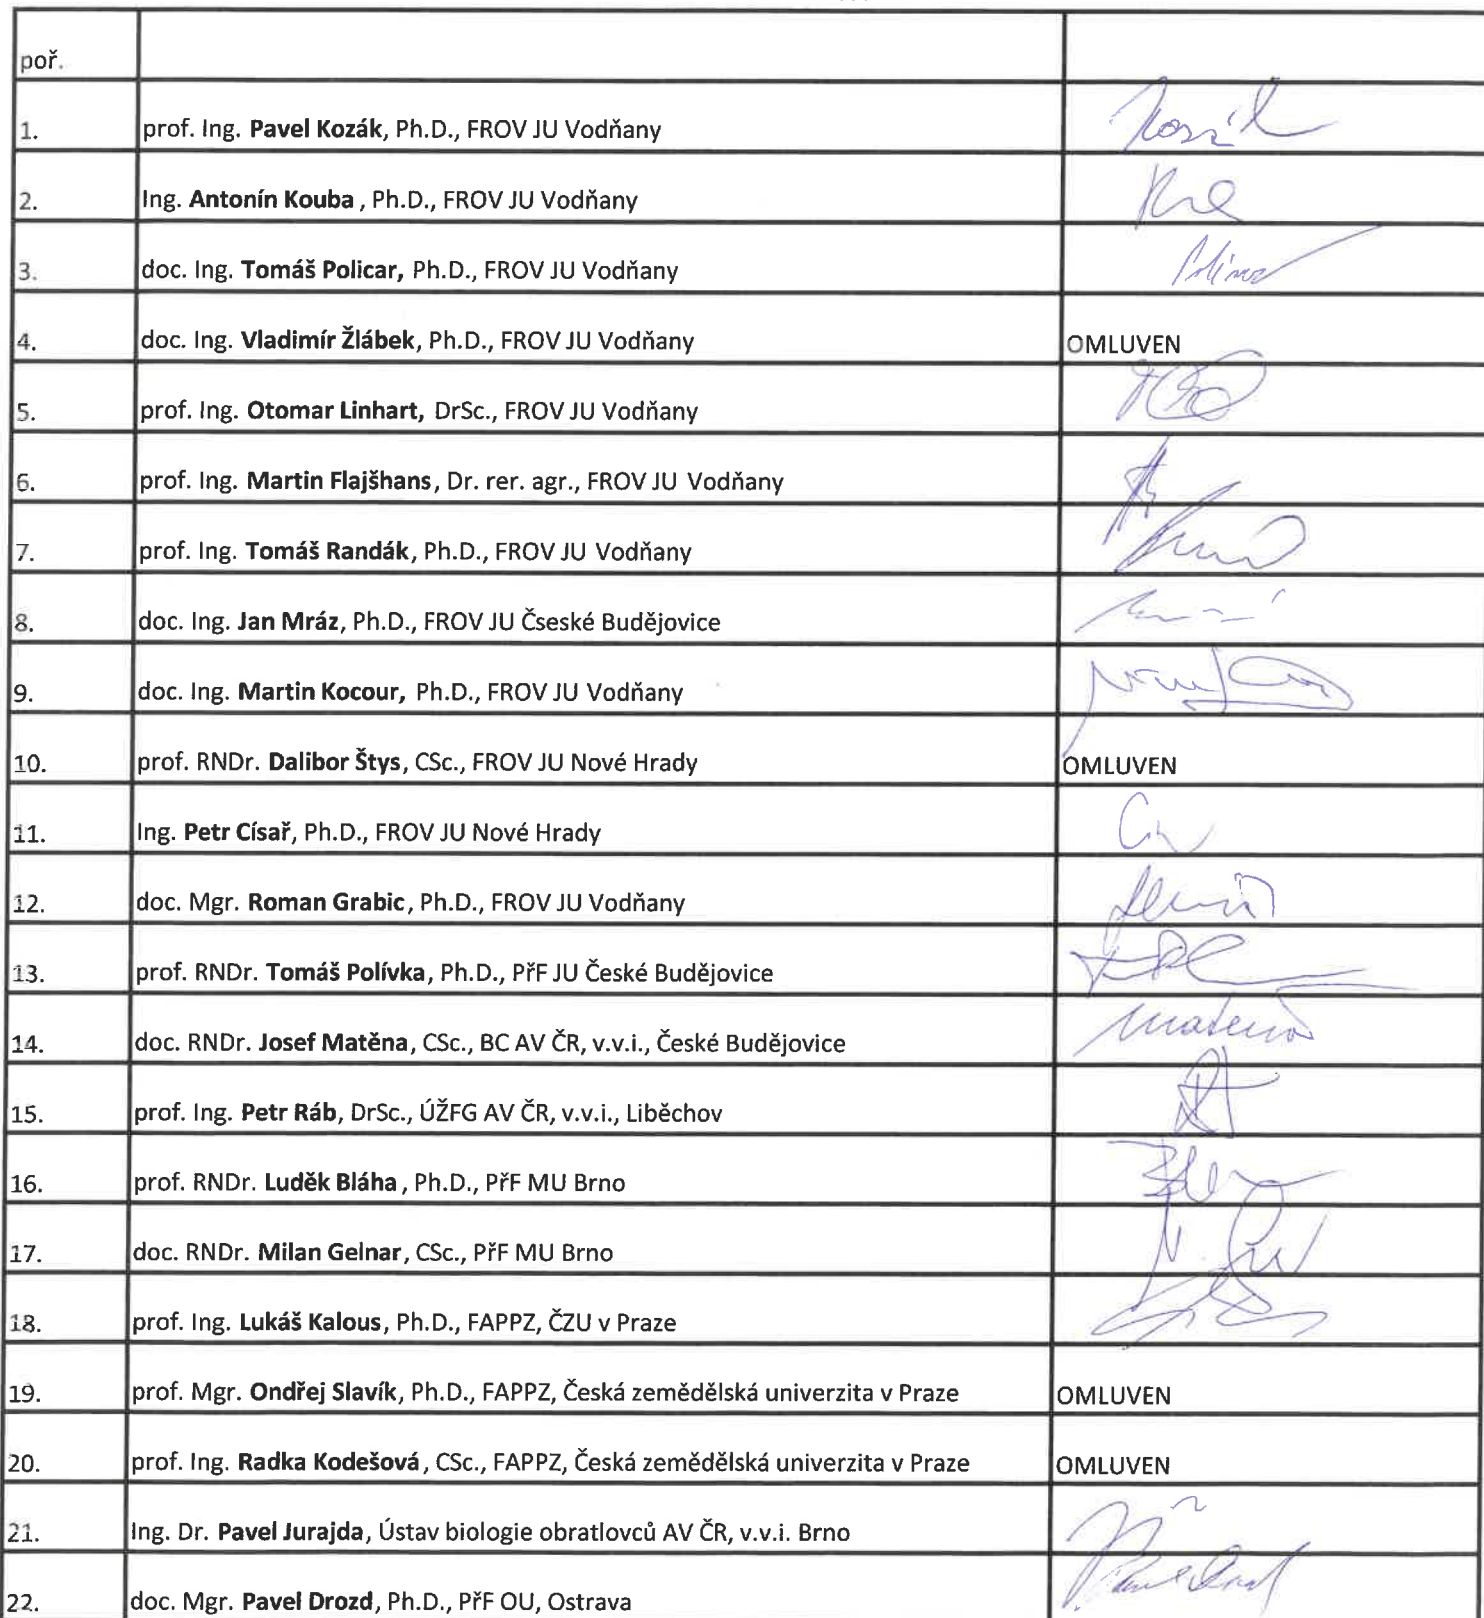 poř.
1. prof. Ing. Pavel Kozák, Ph.D., FROV JU Vodňany
2. Ing. Antonín Kouba, Ph.D., FROV JU Vodňany
3. doc. Ing. Tomáš Policar, Ph.D., FROV JU Vodňany
4. doc. Ing. Vladimír Žlábek, Ph.D., FROV JU Vodňany OMLUVEN
5. prof. Ing. Otomar Linhart, DrSc., FROV JU Vodňany
6. prof. Ing. Martin Flajšhans, Dr. rer. agr., FROV JU Vodňany
7. prof. Ing. Tomáš Randák, Ph.D., FROV JU Vodňany
8. doc. Ing. Jan Mráz, Ph.D., FROV JU Čseské Budějovice
9. doc. Ing. Martin Kocour, Ph.D., FROV JU Vodňany
10. prof. RNDr. Dalibor Štys, CSc., FROV JU Nové Hrady OMLUVEN
11. Ing. Petr Císař, Ph.D., FROV JU Nové Hrady
12. doc. Mgr. Roman Grabic, Ph.D., FROV JU Vodňany
13. prof. RNDr. Tomáš Polívka, Ph.D., PřF JU České Budějovice
14. doc. RNDr. Josef Matěna, CSc., BC AV ČR, v.v.i., České Budějovice
15. prof. Ing. Petr Ráb, DrSc., ÚŽFG AV ČR, v.v.i., Liběchov
16. prof. RNDr. Luděk Bláha, Ph.D., PřF MU Brno
17. doc. RNDr. Milan Gelnar, CSc., PřF MU Brno
18. prof. Ing. Lukáš Kalous, Ph.D., FAPPZ, ČZU v Praze
19. prof. Mgr. Ondřej Slavík, Ph.D., FAPPZ, Česká zemědělská univerzita v Praze OMLUVEN
20. prof. Ing. Radka Kodešová, CSc., FAPPZ, Česká zemědělská univerzita v Praze OMLUVEN
21. Ing. Dr. Pavel Jurajda, Ústav biologie obratlovců AV ČR, v.v.i. Brno
22. doc. Mgr. Pavel Drozd, Ph.D., PřF OU, Ostrava